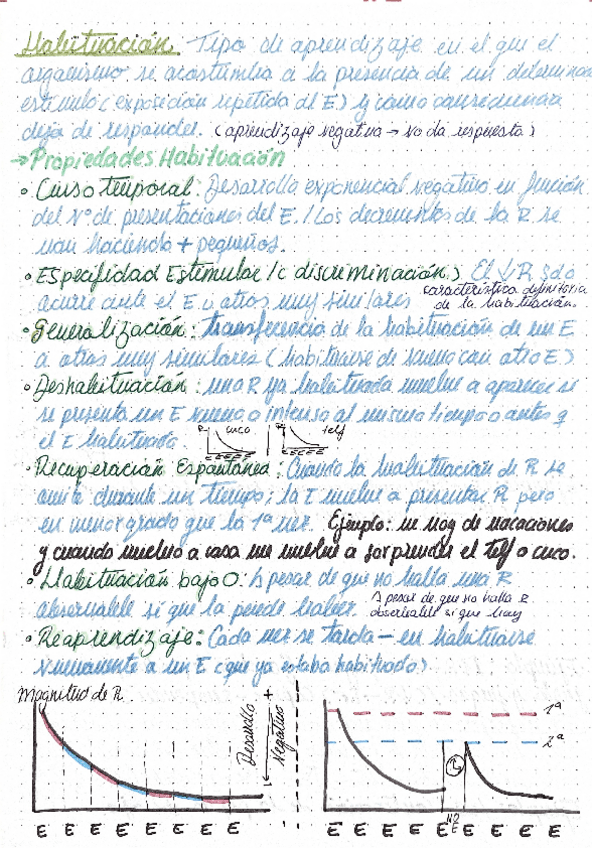 Habituación. Tipo de aprendizaje en el que el
organismo se acostumbra a la presencia de un determinado
estimulo (exposición repetida del E) y como consecuencia
deja de responder. (aprendizaje negativo → No da respuesta)
→ Propiedades Habituación
• Curso temporal: Desarrollo exponencial negativo en función
del Nº de presentaciones del E. / Los decrementos de la R se
van haciendo + pequeños.
• Especifidad Estimular / c discriminación) El ↓ R solo
ocurre ante el E u otros muy similares característica definitoria
de la habituación.
• Generalización: transferencia de la habituación de un E
a otros muy similares (habituarse de nuevo con otro E)
• Deshabituación: una R ya habituada vuelve a aparecer si
se presenta un E nuevo o intenso al mismo tiempo o antes q
el E habituado. R cuco R telf
E E E E E E E E E E
• Recuperación Espontanea: Cuando la habituación de R se
omite durante un tiempo; la E vuelve a presentar R pero
en menor grado que la 1ª vez. Ejemplo: me voy de vacaciones
y cuando vuelvo a casa me vuelve a sorprender el telf o cuco.
• Habituación bajo 0: A pesar de que no halla una R
observable si que la puede haber. A pesar de que no halla R
observable si que hay
• Reaprendizaje: Cada vez se tarda – en habituarse
nuevamente a un E (que ya estaba habituado)
Magnitud de R
Desarrollo Negativo +
1ª
2ª
E E E E E E E E
E E E E E E E E E